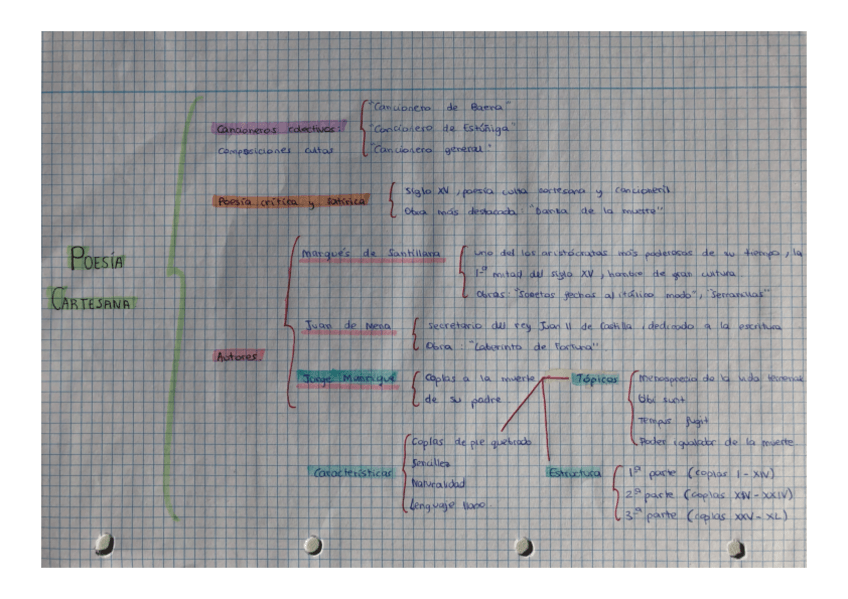 POESÍA
CARTESANA
Cancioneros colectivos:
composiciones cultas
"Cancionero de Baena"
"Cancionero de Estúñiga"
"Cancionero general"
Poesía crítica y satírica
Siglo XV, poesía culta cortesana y cancioneril
Obra más destacada: "Danza de la muerte"
Autores:
Marqués de Santillana
uno del los aristócratas más poderosos de su tiempo, la
1ª mitad del siglo XV, hombre de gran cultura.
Obras: "Sonetos fechos al itálico modo", "Serranillas"
Juan de Mena
secretario del rey Juan II de Castilla, dedicado a la escritura
Obra: "Laberinto de Fortuna".
Jorge Manrique
Coplas a la muerte
de su padre
Tópicos
Menosprecio de la vida terrenal
Ubi sunt
Tempus fugit
Poder igualador de la muerte
Características
Coplas de pie quebrado
Sencillez
Naturalidad
Lenguaje llano
Estructura
1ª parte (coplas I - XIV)
2ª parte (coplas XIV - XXIV)
3ª parte (coplas XXV - XL)